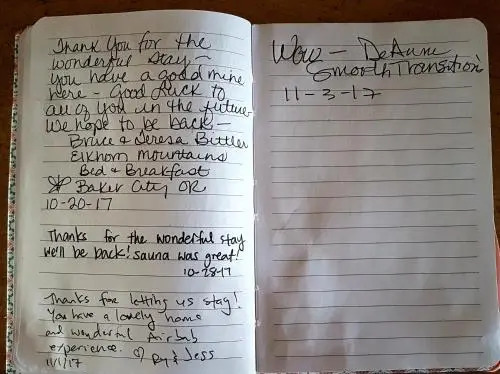 Thank You for the
wonderful stay –
you have a gold mine
here – Good luck to
all of you in the future
We hope to be back –
Bruce & Teresa Bittler
Elkhorn Mountains
Bed & Breakfast
Baker City OR
10-20-17
Thanks for the wonderful stay
we'll be back! sauna was great!
10-28-17
Thanks for letting us stay!
You have a lovely home
and wonderful Airbnb
experience. ♡ Ry & Jess
11/1/17
Wow – DeAnne
Smooth Transition
11-3-17